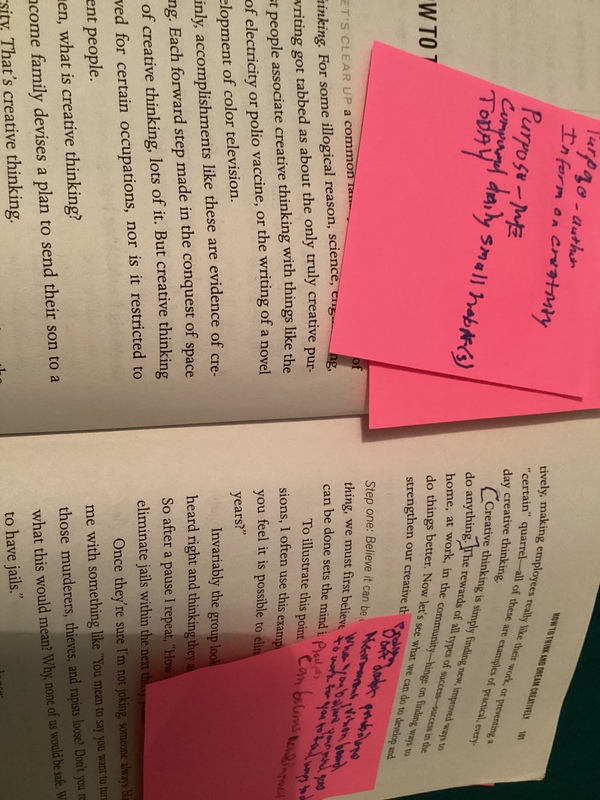 HOW TO T
LET'S CLEAR UP a common of
hinking. For some illogical reason, science, ng,
writing got tabbed as about the only truly creative pur-
st people associate creative thinking with things like the
of electricity or polio vaccine, or the writing of a novel
elopment of color television.
inly, accomplishments like these are evidence of cre-
ng. Each forward step made in the conquest of space
of creative thinking, lots of it. But creative thinking
ved for certain occupations, nor is it restricted to
ent people.
en, what is creative thinking?
ncome family devises a plan to send their son to a
rsity. That's creative thinking.
Purpose - author
Inform on creativity
Purpose - ME
Command daily small habit(s)
TODAY
HOW TO THINK AND DREAM CREATIVELY 101
tively, making employees really like their work, or preventing a
"certain" quarrel—all of these are examples of practical, every-
day creative thinking.
Creative thinking is simply finding new, improved ways to
do anything. The rewards of all types of success—success in the
home, at work, in the community—hinge on finding ways to
do things better. Now let's see what we can do to develop and
strengthen our creative th
Step one: Believe it can be
thing, we must first believe
can be done sets the mind i
To illustrate this point
sions, I often use this examp
you feel it is possible to elim
years?"
Invariably the group look
heard right and thinking they a
So after a pause I repeat, "How
eliminate jails within the next th
Once they're sure I'm not joking, someone always bl
me with something like "You mean to say you want to turn
those murderers, thieves, and rapists loose? Don't you re
what this would mean? Why, none of us would be safe. W
to have jails."